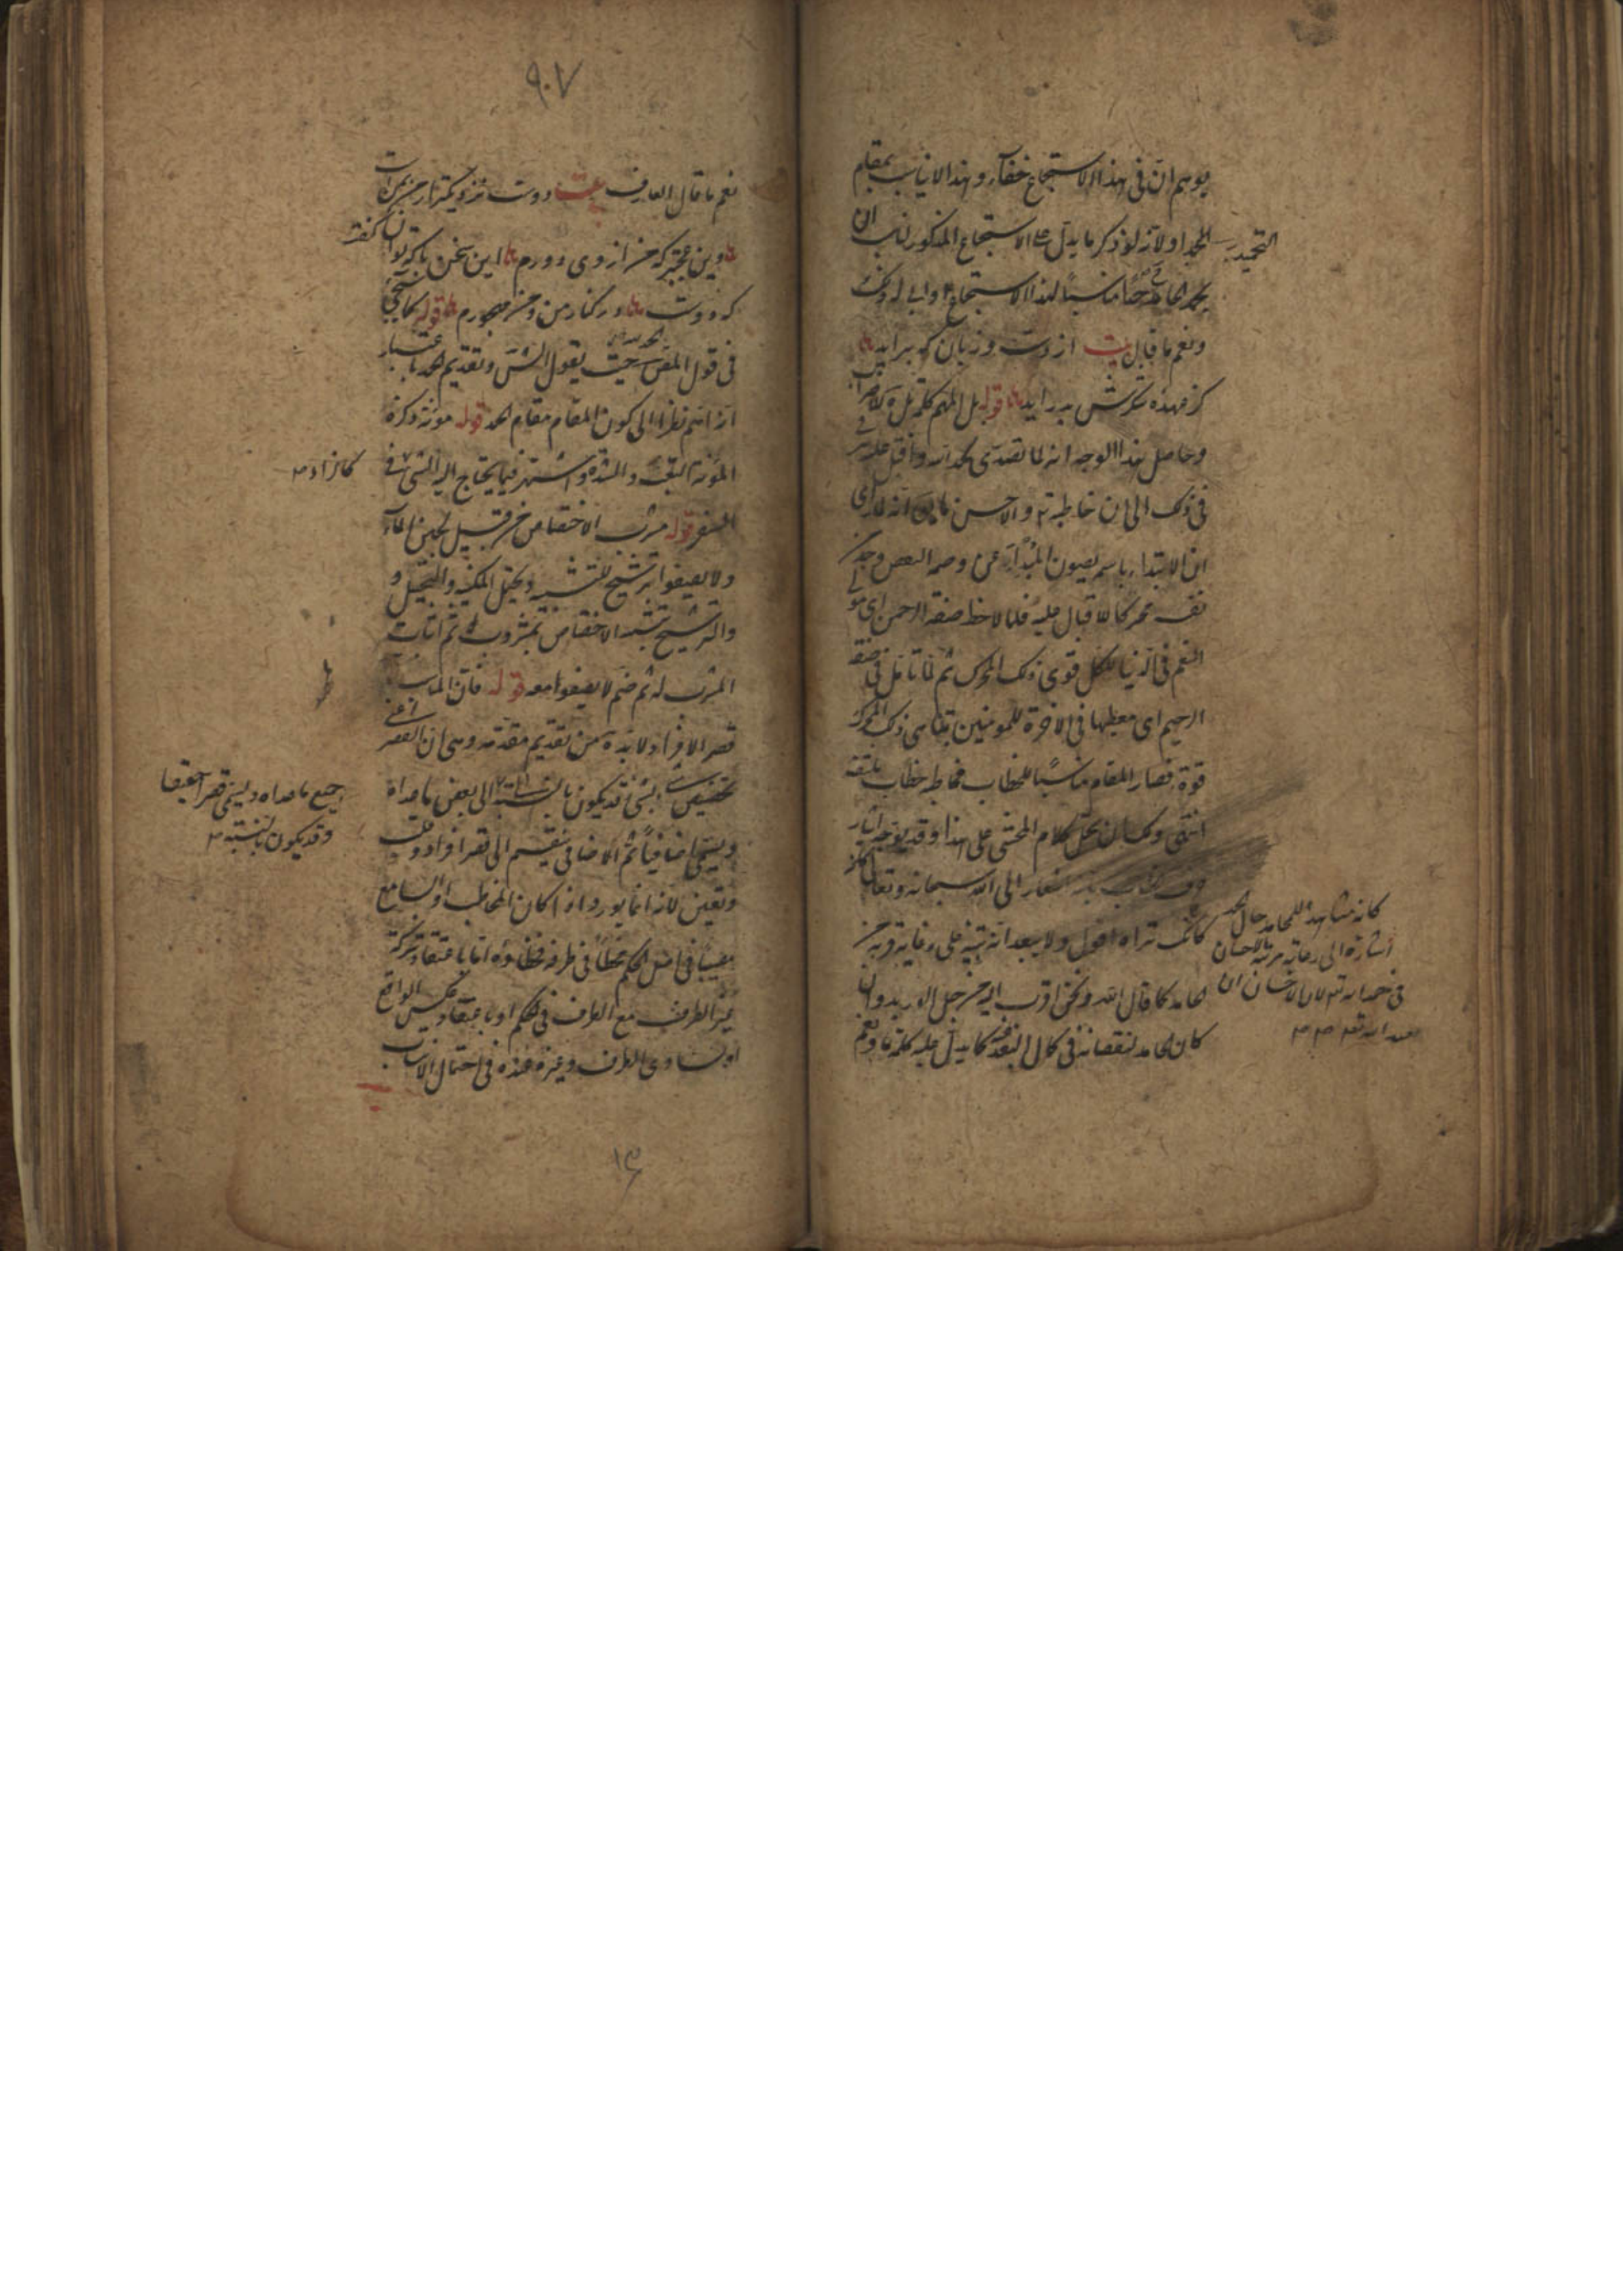 يوهم ان في هذا الاستجماع خفاء وهذا لا يناسب بمقام
التحميد
الحمد اولا لانه لو ذكر ما يدل على الاستجماع المذكور لناسب ان
يحمد الحامد حمدا مناسبا لهذا الاستجماع
ونعم ما قال بيت از دست و زبان كه برايد
كز عهده شكرش بدر ايد قوله بل المهم
وحاصل هذا الوجه انه لما تصدى لحمده واقبل عليه
في ذلك الى ان خاطبه والاحسن انه لما راى
ان الابتداء باسمه يصون المبتدأ به عن وصمة النقص وجد
نفسه محركا لاقبال عليه فلما لاحظ صفة الرحمن اى مولى
النعم في الدنيا للكل قوى ذلك المحرك ثم لما تامل في صفة
الرحيم اى معطيها في الاخرة للمومنين تناهى ذلك المحرك
قوة فصار المقام مناسبا للخطاب فخاطبه خطاب
انتهى ولك ان تحمل كلام المحشى على هذا وقد يوجد
اشعار الى انه سبحانه وتعالى
كانك تراه اقول ولا يبعد انه تنبيه على غاية قربه من
الحامد كما قال الله ونحن اقرب اليه من حبل الوريد وان
كان الحامد لنقصانه في كمال البعد عنه كما يدل عليه كلمة يا ونعم
كانه مشاهد للحامد حال الحمد
اشارة الى رعاية مرتبة الاحسان
في حمد الله لان الاحسان ان
تعبد الله
٩٠٧
نعم ما قال العارف بيت دوست نزديكتر از من بمن است
وين عجبتر كه من از وى دورم اين سخن با كه توان گفت
كه دوست در كنار من و من مهجورم قوله كما يجئ
في قول المص حيث يقول الش وتقديم الحمد باعتبار
انه اهم نظرا الى كون المقام مقام الحمد قوله مؤنة ذكره
المؤنة التعب والشدة واشتهر فيما يحتاج اليه الشى في
كالزاد
السفر قوله مشرب الاختصاص من قبيل لجين الماء
ولا يصفوا ترشيح للتشبيه ويحتمل المكنية والتخييل و
والترشيح بتشبيه الاختصاص بمشروب ثم اثبات
المشرب له ثم ضم لا يصفوا معه قوله فان المناسب
قصر الافراد لا بد من تقديم مقدمة وهى ان القصر اعنى
تخصيص شئ بشئ قد يكون بالنسبة الى بعض ما عداه
جميع ما عداه ويسمى قصرا حقيقيا
وقد يكون بالنسبة
ويسمى اضافيا ثم الاضافي ينقسم الى قصر افراد وقلب
وتعيين لانه انما يورد اذا كان المخاطب او السامع
مصيبا في اصل الحكم مخطأ في طرفه فخطاؤه اما باعتقاد شركة
غير الطرف مع الطرف في الحكم او باعتقاد عكس الواقع
او بتساوى الطرف وغيره عنده في احتمال الانتساب
١٤